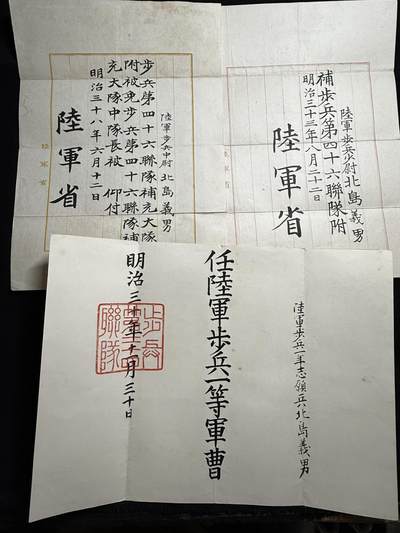 陸軍歩兵少尉北島義男
補歩兵第四十六聯隊附
明治三十三年八月二十二日
陸軍省
陸軍歩兵中尉北島義男
歩兵第四十六聯隊補充大隊
附被免歩兵第四十六聯隊補
充大隊中隊長被 仰付
明治三十八年六月十二日
陸軍省
陸軍省
陸軍歩兵一年志願兵北島義男
任陸軍歩兵一等軍曹
明治三十年十一月三十日
歩兵
聯隊